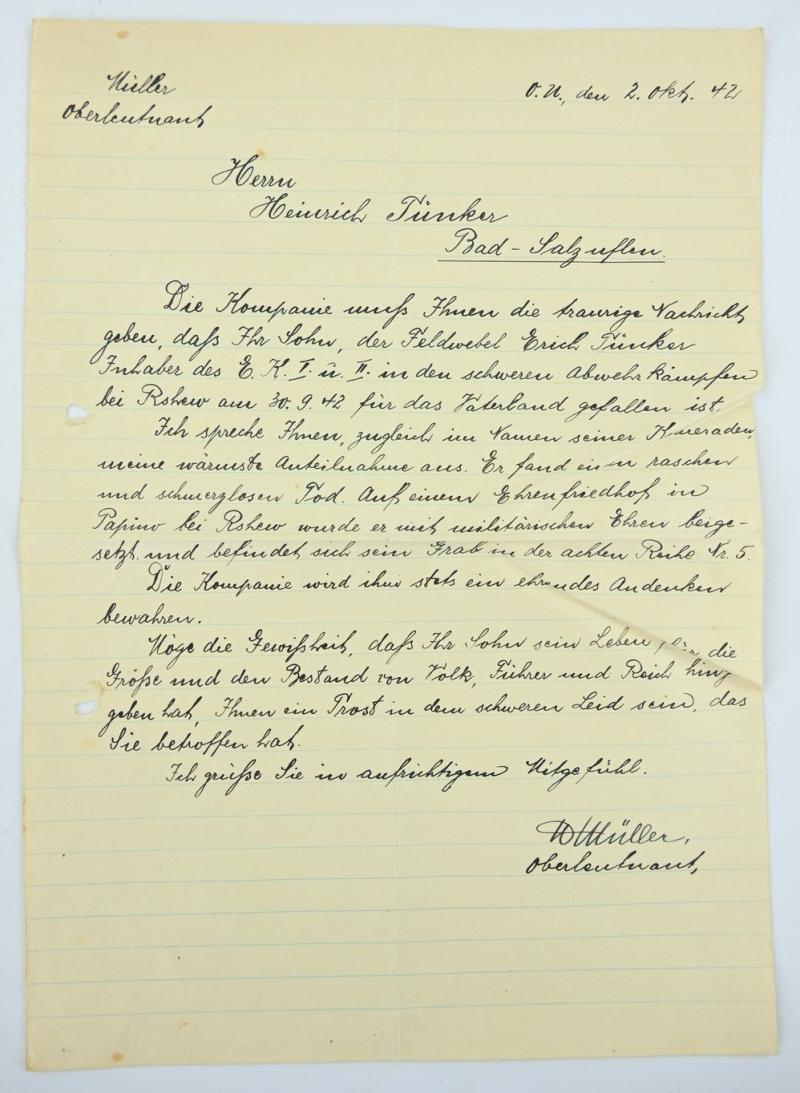 Müller
Oberleutnant
O.U., den 2. Okt. 42
Herrn
Heinrich Tünker
Bad-Salzuflen.
Die Kompanie muß Ihnen die traurige Nachricht
geben, daß Ihr Sohn, der Feldwebel Erich Tünker
Inhaber des E. K. I. u. II. in den schweren Abwehrkämpfen
bei Rshew am 30. 9. 42 für das Vaterland gefallen ist.
Ich spreche Ihnen, zugleich im Namen seiner Kameraden,
meine wärmste Anteilnahme aus. Er fand einen raschen
und schmerzlosen Tod. Auf einem Ehrenfriedhof in
Papino bei Rshew wurde er mit militärischen Ehren beige-
setzt und befindet sich sein Grab in der achten Reihe Nr. 5.
Die Kompanie wird ihm stets ein ehrendes Andenken
bewahren.
Möge die Gewißheit, daß Ihr Sohn sein Leben für die
Größe und den Bestand von Volk, Führer und Reich hinge
geben hat, Ihnen ein Trost in dem schweren Leid sein, das
Sie betroffen hat.
Ich grüße Sie in aufrichtigem Mitgefühl.
Müller,
Oberleutnant,